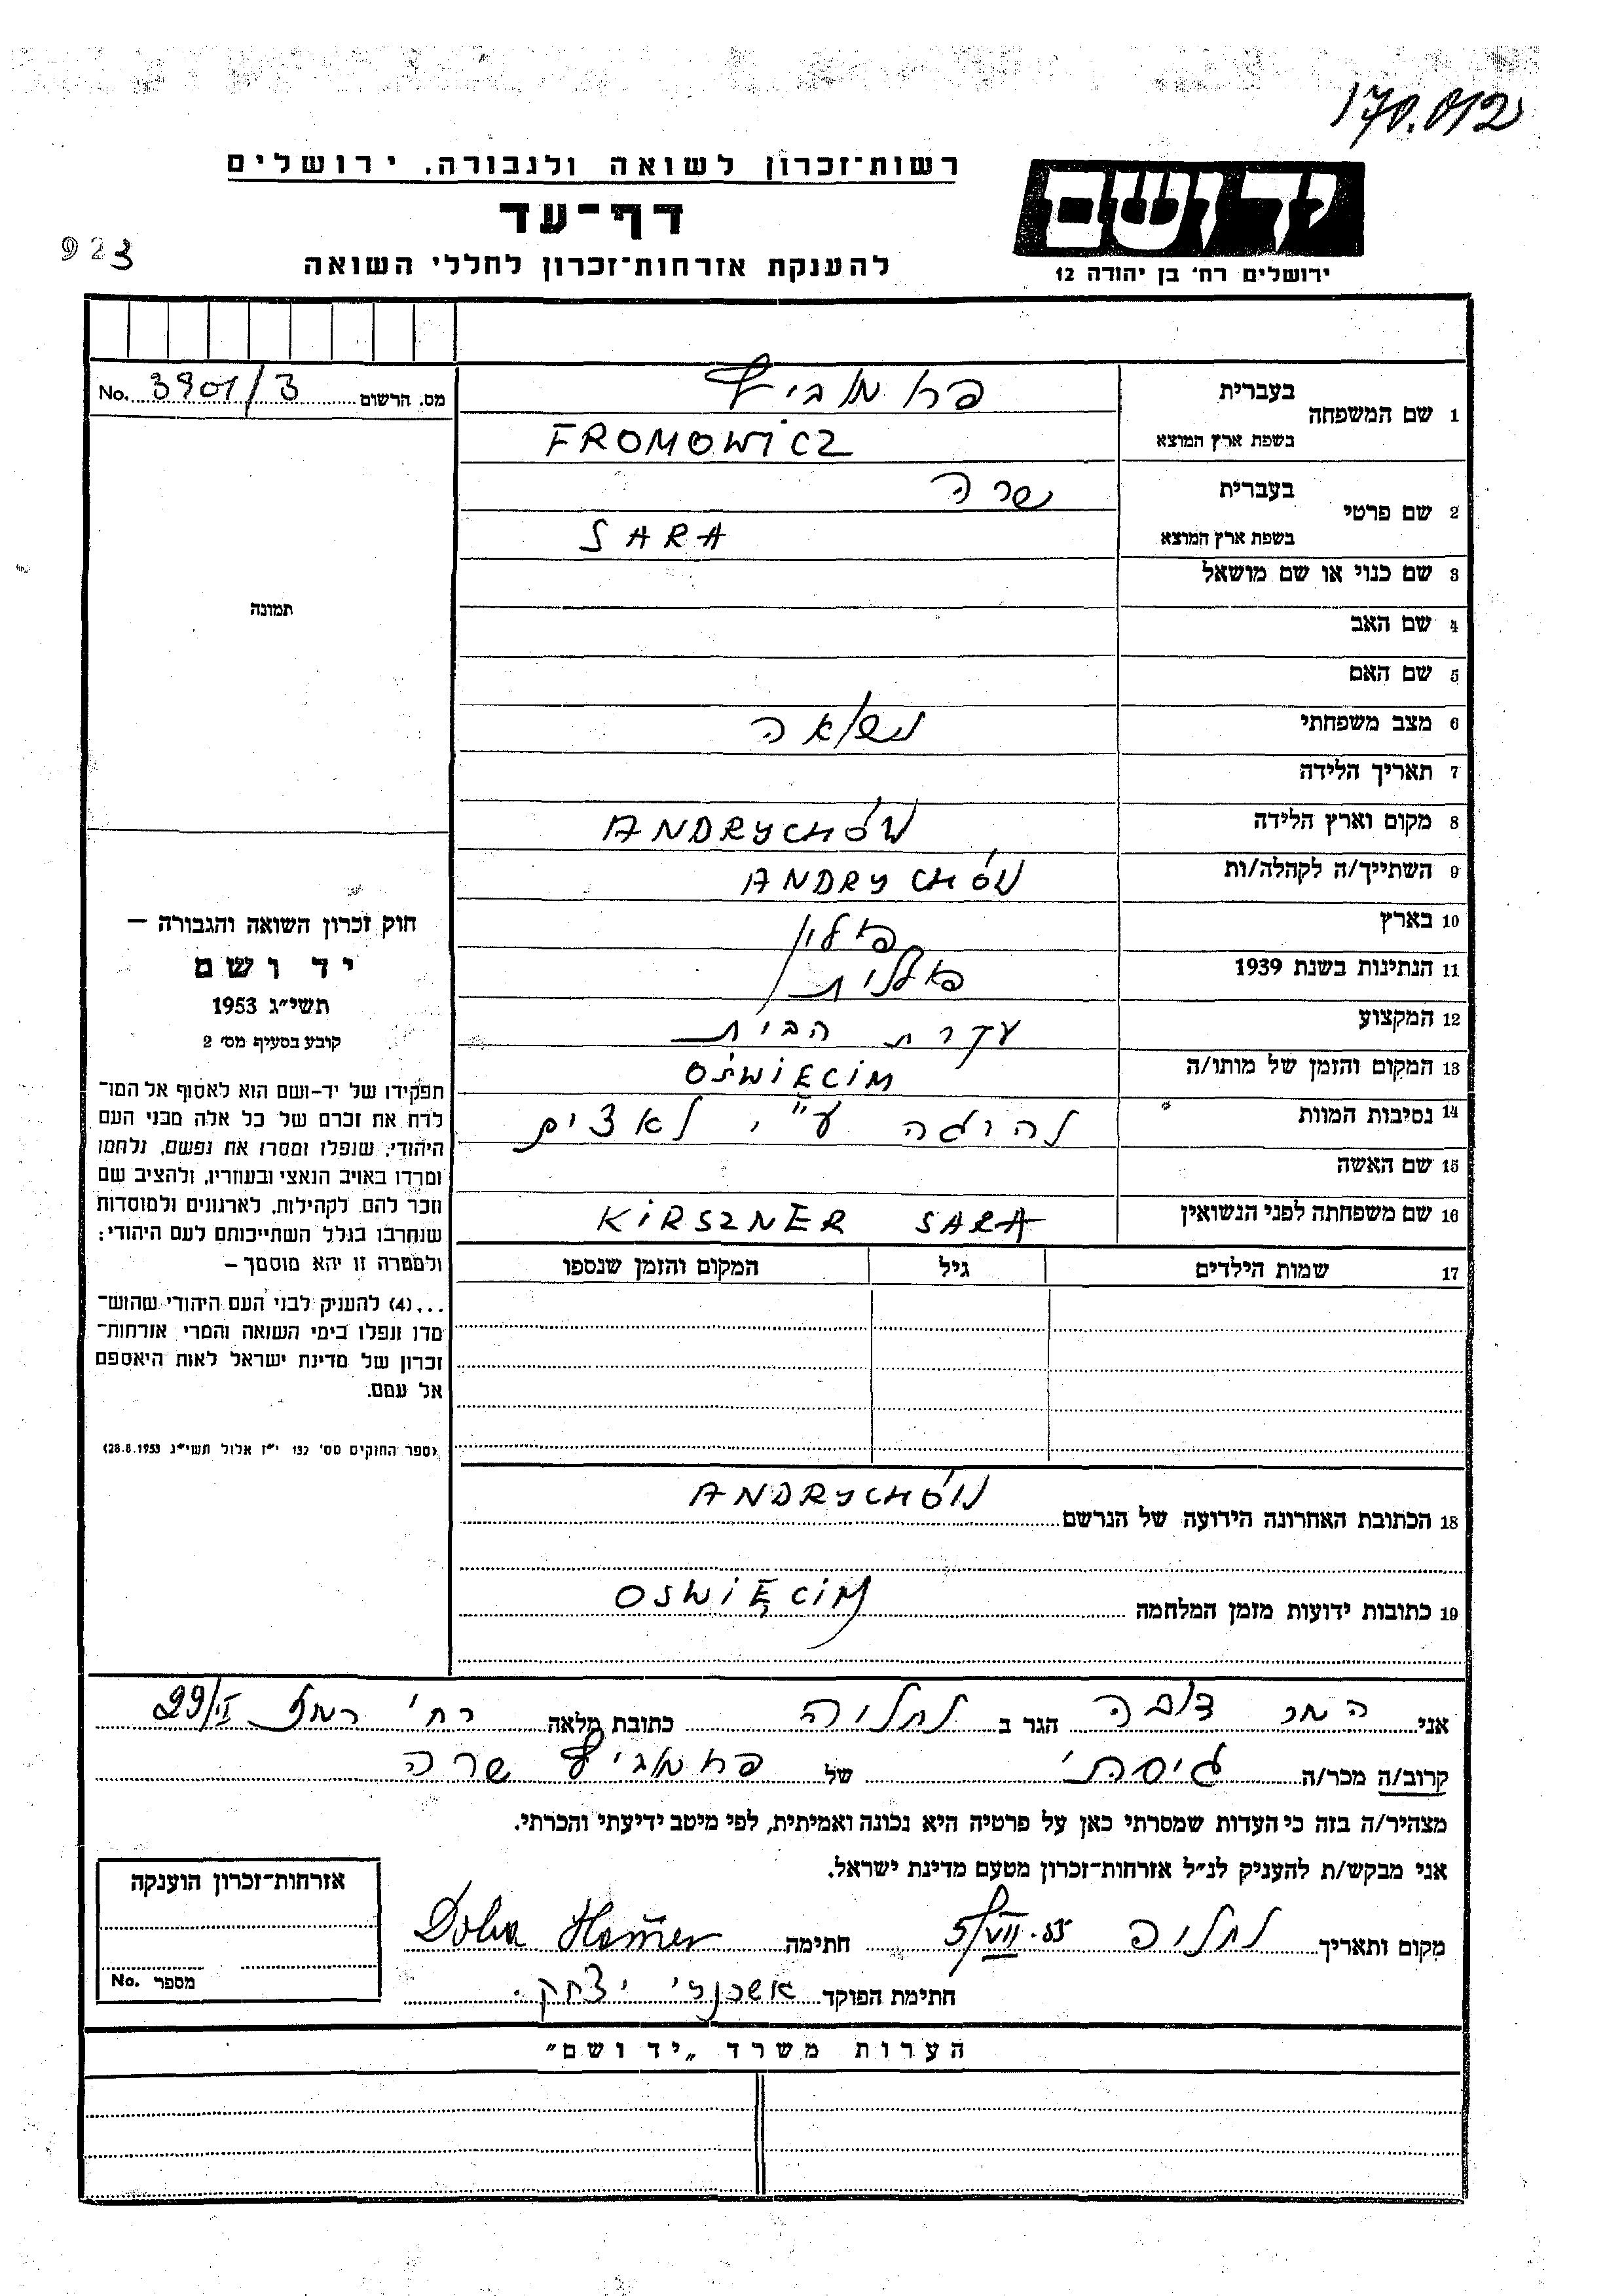 170.012
רשות־זכרון לשואה ולגבורה, ירושלים
יד ושם
דף־עד
923
להענקת אזרחות־זכרון לחללי השואה
ירושלים רח׳ בן יהודה 12
מס. הרשום 3901/3 No.
1 שם המשפחה
בעברית
בשפת ארץ המוצא FROMOWICZ
2 שם פרטי
בעברית שרה
בשפת ארץ המוצא SARA
3 שם כנוי או שם מושאל
4 שם האב
5 שם האם
6 מצב משפחתי נשואה
7 תאריך הלידה
8 מקום וארץ הלידה ANDRYCHÓW
9 השתייך/ה לקהלה/ות ANDRYCHÓW
10 בארץ פולין
11 הנתינות בשנת 1939 פולנית
12 המקצוע עקרת הבית
13 המקום והזמן של מותו/ה OŚWIĘCIM
14 נסיבות המוות נהרגה ע"י נאצים
15 שם האשה
16 שם משפחתה לפני הנשואין KIRSZNER SARA
17 שמות הילדים גיל המקום והזמן שנספו
תמונה
חוק זכרון השואה והגבורה –
יד ושם
תשי״ג 1953
קובע בסעיף מס׳ 2
תפקידו של יד־ושם הוא לאסוף אל המו־
לדת את זכרם של כל אלה מבני העם
היהודי, שנפלו ומסרו את נפשם, נלחמו
ומרדו באויב הנאצי ובעוזריו, ולהציב שם
וזכר להם לקהילות, לארגונים ולמוסדות
שנחרבו בגלל השתייכותם לעם היהודי;
ולמטרה זו יהא מוסמך –
...(4) להעניק לבני העם היהודי שהוש־
מדו ונפלו בימי השואה והמרי אזרחות־
זכרון של מדינת ישראל לאות היאספם
אל עמם.
(ספר החוקים מס׳ 132 י״ז אלול תשי״ג 28.8.1953)
18 הכתובת האחרונה הידועה של הנרשם ANDRYCHÓW
19 כתובות ידועות מזמן המלחמה OSWIĘCIM
אני המר דובה הגר ב נתניה כתובת מלאה רח׳ רמז 29/II
קרוב/ה מכר/ה גיסתי של פרומוביץ שרה
מצהיר/ה בזה כי העדות שמסרתי כאן על פרטיה היא נכונה ואמיתית, לפי מיטב ידיעתי והכרתי.
אני מבקש/ת להעניק לנ״ל אזרחות־זכרון מטעם מדינת ישראל.
מקום ותאריך נתניה 5/VII.55 חתימה Doba Hamer
חתימת הפוקד אשכנזי יצחק.
אזרחות־זכרון הוענקה
מספר No.
הערות משרד „יד ושם״